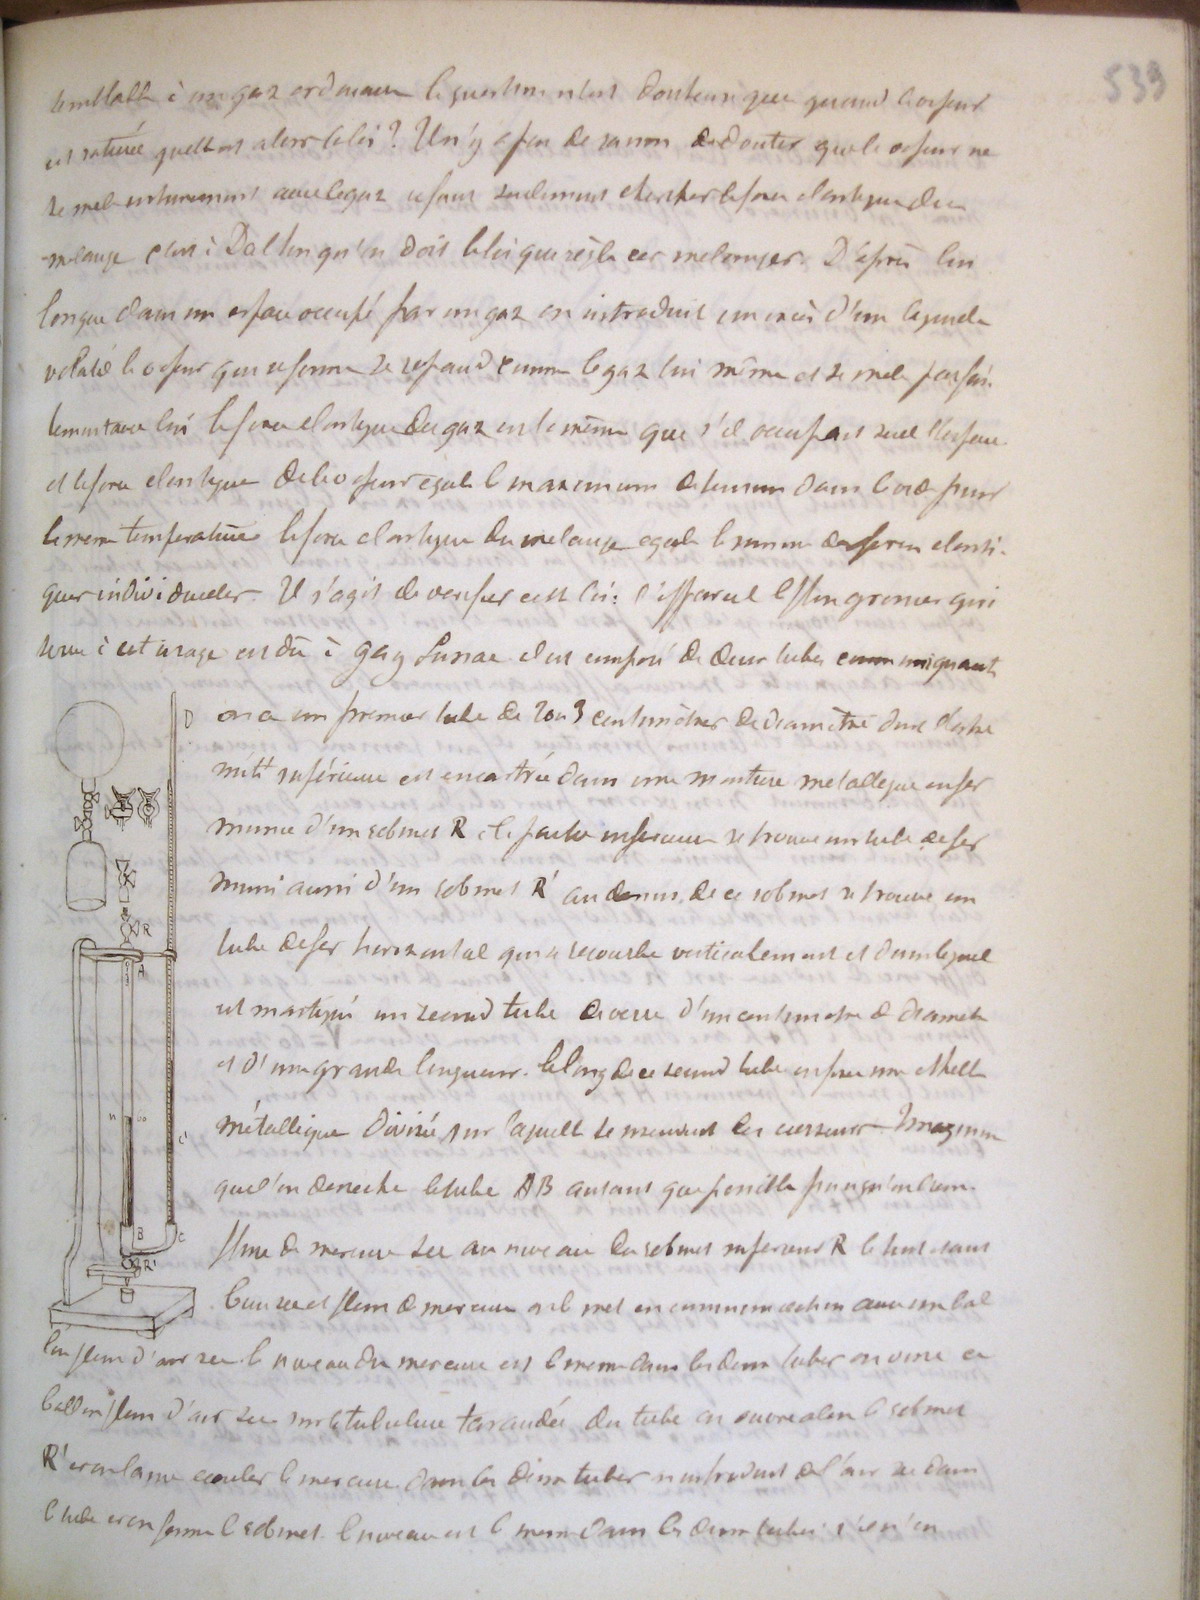 539
semblable à un gaz ordinaire la question n'est douteuse que quand la vapeur
est saturée quelle est alors la loi? Il n'y a pas de raison de douter que la vapeur ne
se mele intimement avec le gaz il faut seulement chercher la force elastique du
melange c'est à Dalton qu'on doit la loi qui règle ces melanges. D'après lui
lorsque dans un espace occupé par un gaz on introduit un excès d'un liquide
volatil la vapeur qui se forme se repand comme le gaz lui même et se mele parfai-
tement avec lui la force elastique du gaz est la même que s'il occupait seul l'espace
et la force elastique de la vapeur egale le maximum de tension dans le vide pour
la meme température la force elastique du melange egale la somme des forces elasti-
ques individuelles. Il s'agit de verifier cette loi: l'appareil le plus grossier qui
serve à cet usage est dû à Gay Lussac il est composé de deux tubes communiquants
on a un premier tube de 2 ou 3 centimètres de diamètre dont l'extre
mité supérieure est encastrée dans une monture metallique en fer
munie d'un robinet R à la partie inferieure se trouve un tube de fer
muni aussi d'un robinet R' au dessus de ce robinet se trouve un
tube de fer horizontal qui se recourbe verticalement et dans lequel
est mastiqué un second tube de verre d'un centimetre de diametre
et d'une grande longueur. le long de ce second tube est une echelle
métallique divisée sur laquelle se meuvent des curseurs Imaginons
que l'on desseche le tube AB autant que possible puis qu'on l'em-
plisse de mercure sec au niveau du robinet superieur R le tout etant
bien sec et plein de mercure on le met en communication avec un bal
lon plein d'air sec le niveau du mercure est le meme dans les deux tubes on visse ce
ballon plein d'air sec sur la tubulure taraudée du tube on ouvre alors le robinet
R' et on laisse ecouler le mercure dans les deux tubes on introduit de l'air sec dans
le tube et on ferme le robinet. le niveau est le meme dans les deux tubes s'il n'en
D
R
A
n
C'
B
C
R'